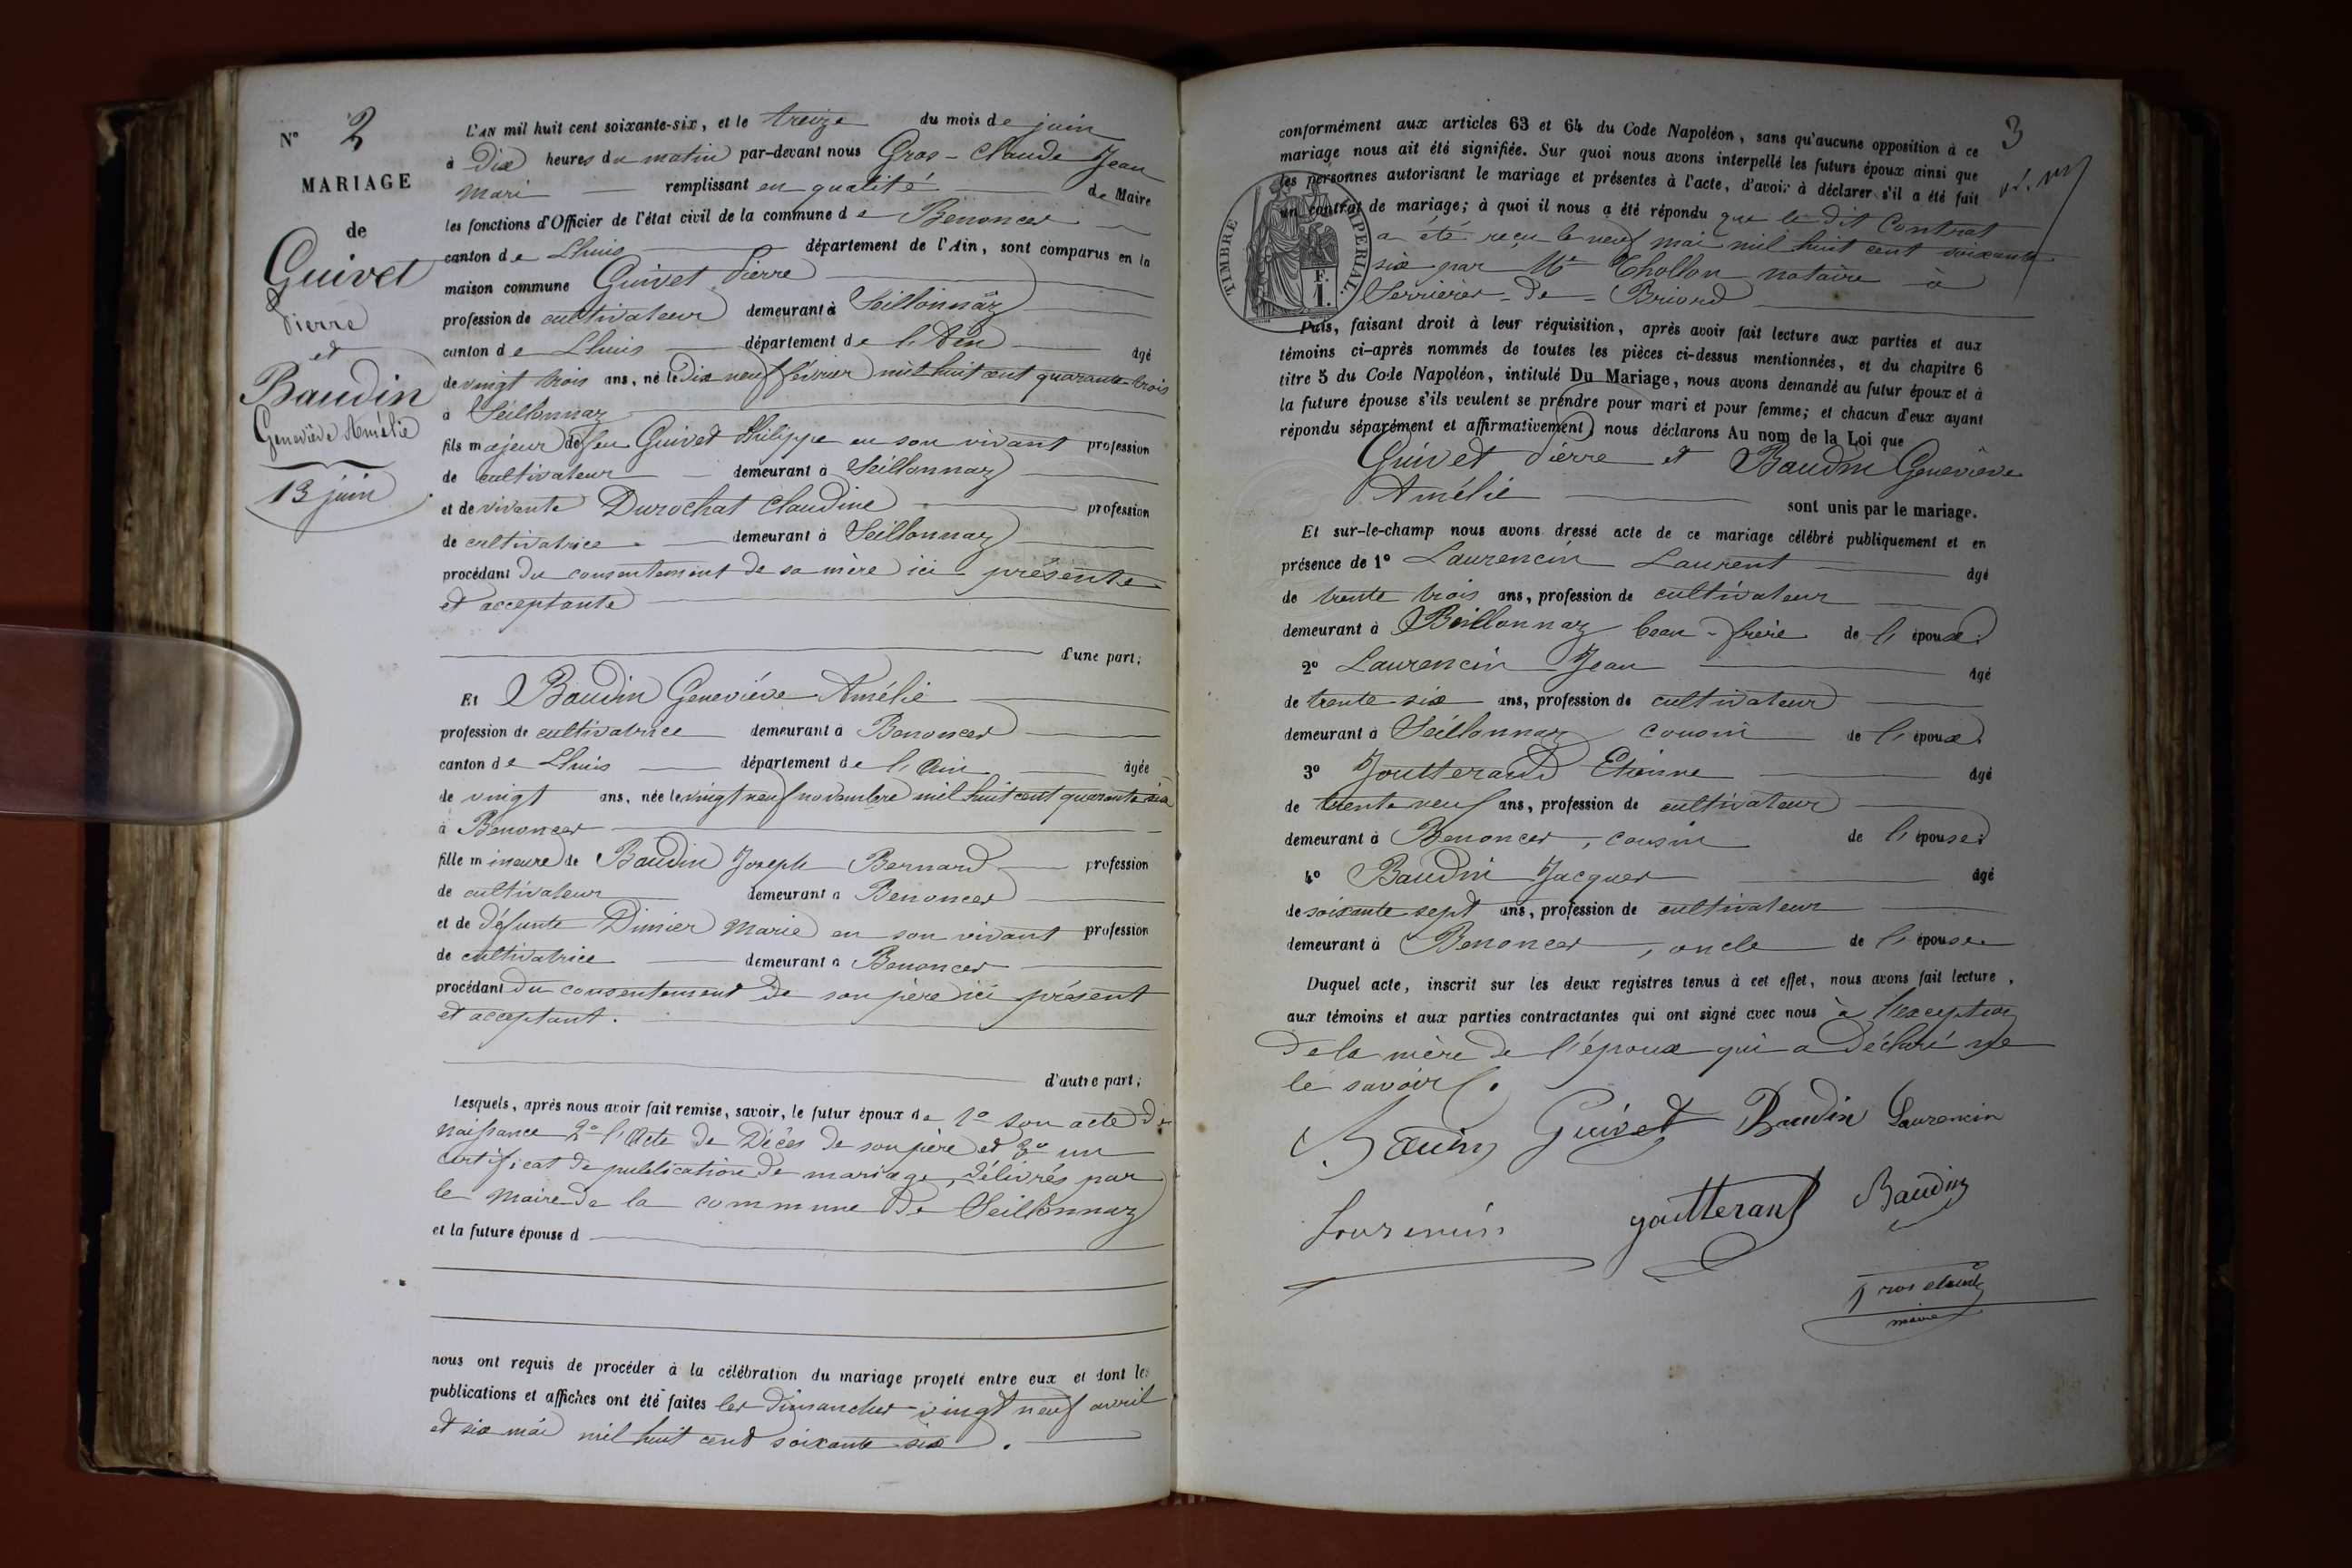 N° 2
MARIAGE
de
Guivet
Pierre
et
Baudin
Geneviève Amélie
13 juin
L'AN mil huit cent soixante-six, et le treize du mois de juin
à Dix heures du matin par-devant nous Gros-Claude Jean
Mari remplissant en qualité de Maire
les fonctions d'Officier de l'état civil de la commune de Benonces
canton de Lhuis département de l'Ain, sont comparus en la
maison commune Guivet Pierre
profession de cultivateur demeurant à Seillonnaz
canton de Lhuis département de l'Ain âgé
de vingt trois ans, né le Dix neuf février mil huit cent quarante-trois
à Seillonnaz
fils majeur de feu Guivet Philippe en son vivant profession
de cultivateur demeurant à Seillonnaz
et de vivante Durochat Claudine profession
de cultivatrice demeurant à Seillonnaz
procédant du consentement de sa mère ici présente
et acceptante
d'une part;
Et Baudin Geneviève Amélie
profession de cultivatrice demeurant à Benonces
canton de Lhuis département de l'Ain âgée
de vingt ans, née le vingt neuf novembre mil huit cent quarante six
à Benonces
fille mineure de Baudin Joseph Bernard profession
de cultivateur demeurant à Benonces
et de défunte Dimier Marie en son vivant profession
de cultivatrice demeurant à Benonces
procédant du consentement de son père ici présent
et acceptant.
d'autre part;
Lesquels, après nous avoir fait remise, savoir, le futur époux de 1° son acte de
naissance 2° l'Acte de Décès de son père et 3° un
certificat de publication de mariage, délivrés par
le Maire de la commune de Seillonnaz
et la future épouse d
nous ont requis de procéder à la célébration du mariage projeté entre eux et dont les
publications et affiches ont été faites les Dimanches vingt neuf avril
et six mai mil huit cent soixante six.
3
conformément aux articles 63 et 64 du Code Napoléon, sans qu'aucune opposition à ce
mariage nous ait été signifiée. Sur quoi nous avons interpellé les futurs époux ainsi que
les personnes autorisant le mariage et présentes à l'acte, d'avoir à déclarer s'il a été fait
un contrat de mariage; à quoi il nous a été répondu que le dit Contrat
a été reçu le neuf mai mil huit cent soixante
six par Me Chollon notaire à
Serrières-de-Briord
TIMBRE IMPERIAL
F.
1.
Puis, faisant droit à leur réquisition, après avoir fait lecture aux parties et aux
témoins ci-après nommés de toutes les pièces ci-dessus mentionnées, et du chapitre 6
titre 5 du Code Napoléon, intitulé Du Mariage, nous avons demandé au futur époux et à
la future épouse s'ils veulent se prendre pour mari et pour femme; et chacun d'eux ayant
répondu séparément et affirmativement, nous déclarons Au nom de la Loi que
Guivet Pierre et Baudin Geneviève
Amélie sont unis par le mariage.
Et sur-le-champ nous avons dressé acte de ce mariage célébré publiquement et en
présence de 1° Laurencin Laurent âgé
de trente trois ans, profession de cultivateur
demeurant à Seillonnaz beau-frère de l'époux.
2° Laurencin Jean âgé
de trente six ans, profession de cultivateur
demeurant à Seillonnaz cousin de l'époux.
3° Joutterand Etienne âgé
de trente neuf ans, profession de cultivateur
demeurant à Benonces, cousin de l'épouse.
4° Baudin Jacques âgé
de soixante sept ans, profession de cultivateur
demeurant à Benonces, oncle de l'épouse
Duquel acte, inscrit sur les deux registres tenus à cet effet, nous avons fait lecture,
aux témoins et aux parties contractantes qui ont signé avec nous à l'exception
de la mère de l'époux qui a déclaré ne
le savoir.
Baudin Guivet Baudin Laurencin
Laurencin goutterand Baudin
Gros claude
maire